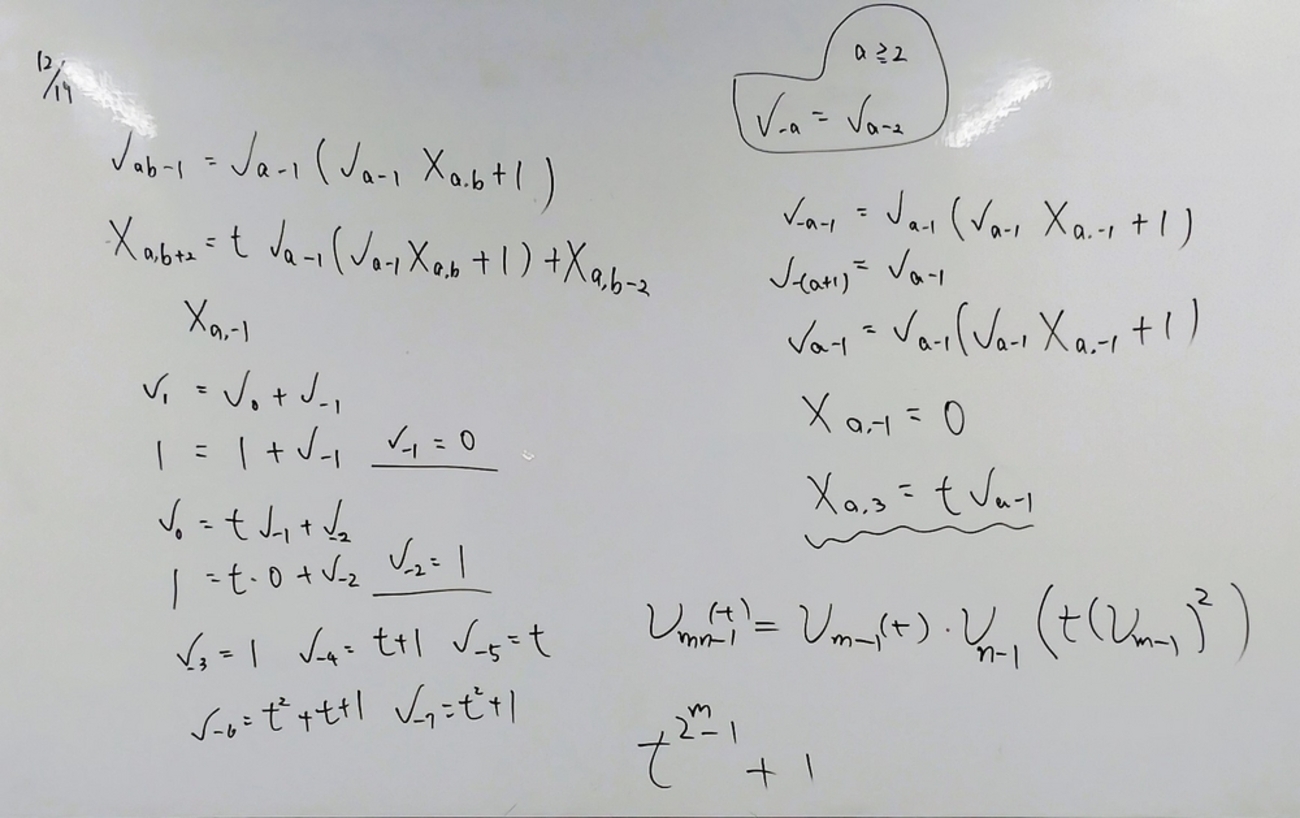 12/14
V_{ab-1} = V_{a-1} (V_{a-1} X_{a,b} + 1)
X_{a,b+2} = t V_{a-1} (V_{a-1} X_{a,b} + 1) + X_{a,b-2}
X_{a,-1}
V_1 = V_0 + V_{-1}
1 = 1 + V_{-1} V_{-1} = 0
V_0 = t V_{-1} + V_{-2}
1 = t · 0 + V_{-2} V_{-2} = 1
V_{-3} = 1 V_{-4} = t+1 V_{-5} = t
V_{-6} = t^2+t+1 V_{-7} = t^2+1
a ≧ 2
V_{-a} = V_{a-2}
V_{-a-1} = V_{a-1} (V_{a-1} X_{a,-1} + 1)
V_{-(a+1)} = V_{a-1}
V_{a-1} = V_{a-1} (V_{a-1} X_{a,-1} + 1)
X_{a,-1} = 0
X_{a,3} = t V_{a-1}
V_{mn-1}(t) = V_{m-1}(t) · V_{n-1} (t(V_{m-1})^2)
t^{2^m-1} + 1